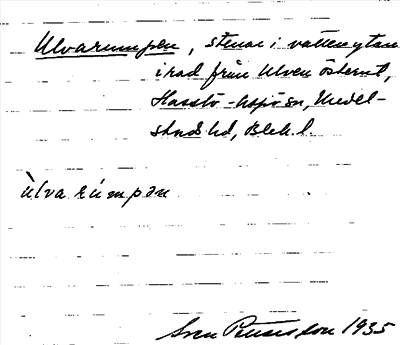 Ulvarumpen, stenar i vattenytan
i rad från Ulven österut,
Hasslö-Aspö sn, Medel-
stads hd, Blek. l.
ùlva rúmpən
Sven Petersson 1935